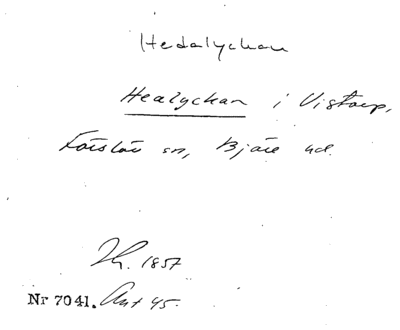 Hedalyckan
Healyckan i Vistorp,
Förslöv sn, Bjäre hd.
Th. 1857
Nr 7041. Ant 45.